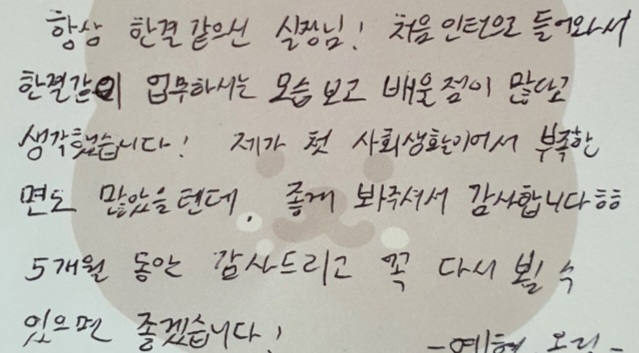 항상 한결 같으신 실장님! 처음 인턴으로 들어와서
한결같이 업무하시는 모습 보고 배울 점이 많다고
생각했습니다! 제가 첫 사회생활이어서 부족한
면도 많았을텐데, 좋게 봐주셔서 감사합니다ㅎㅎ
5개월 동안 감사드리고 꼭 다시 뵐 수
있으면 좋겠습니다!
-예현 오리-